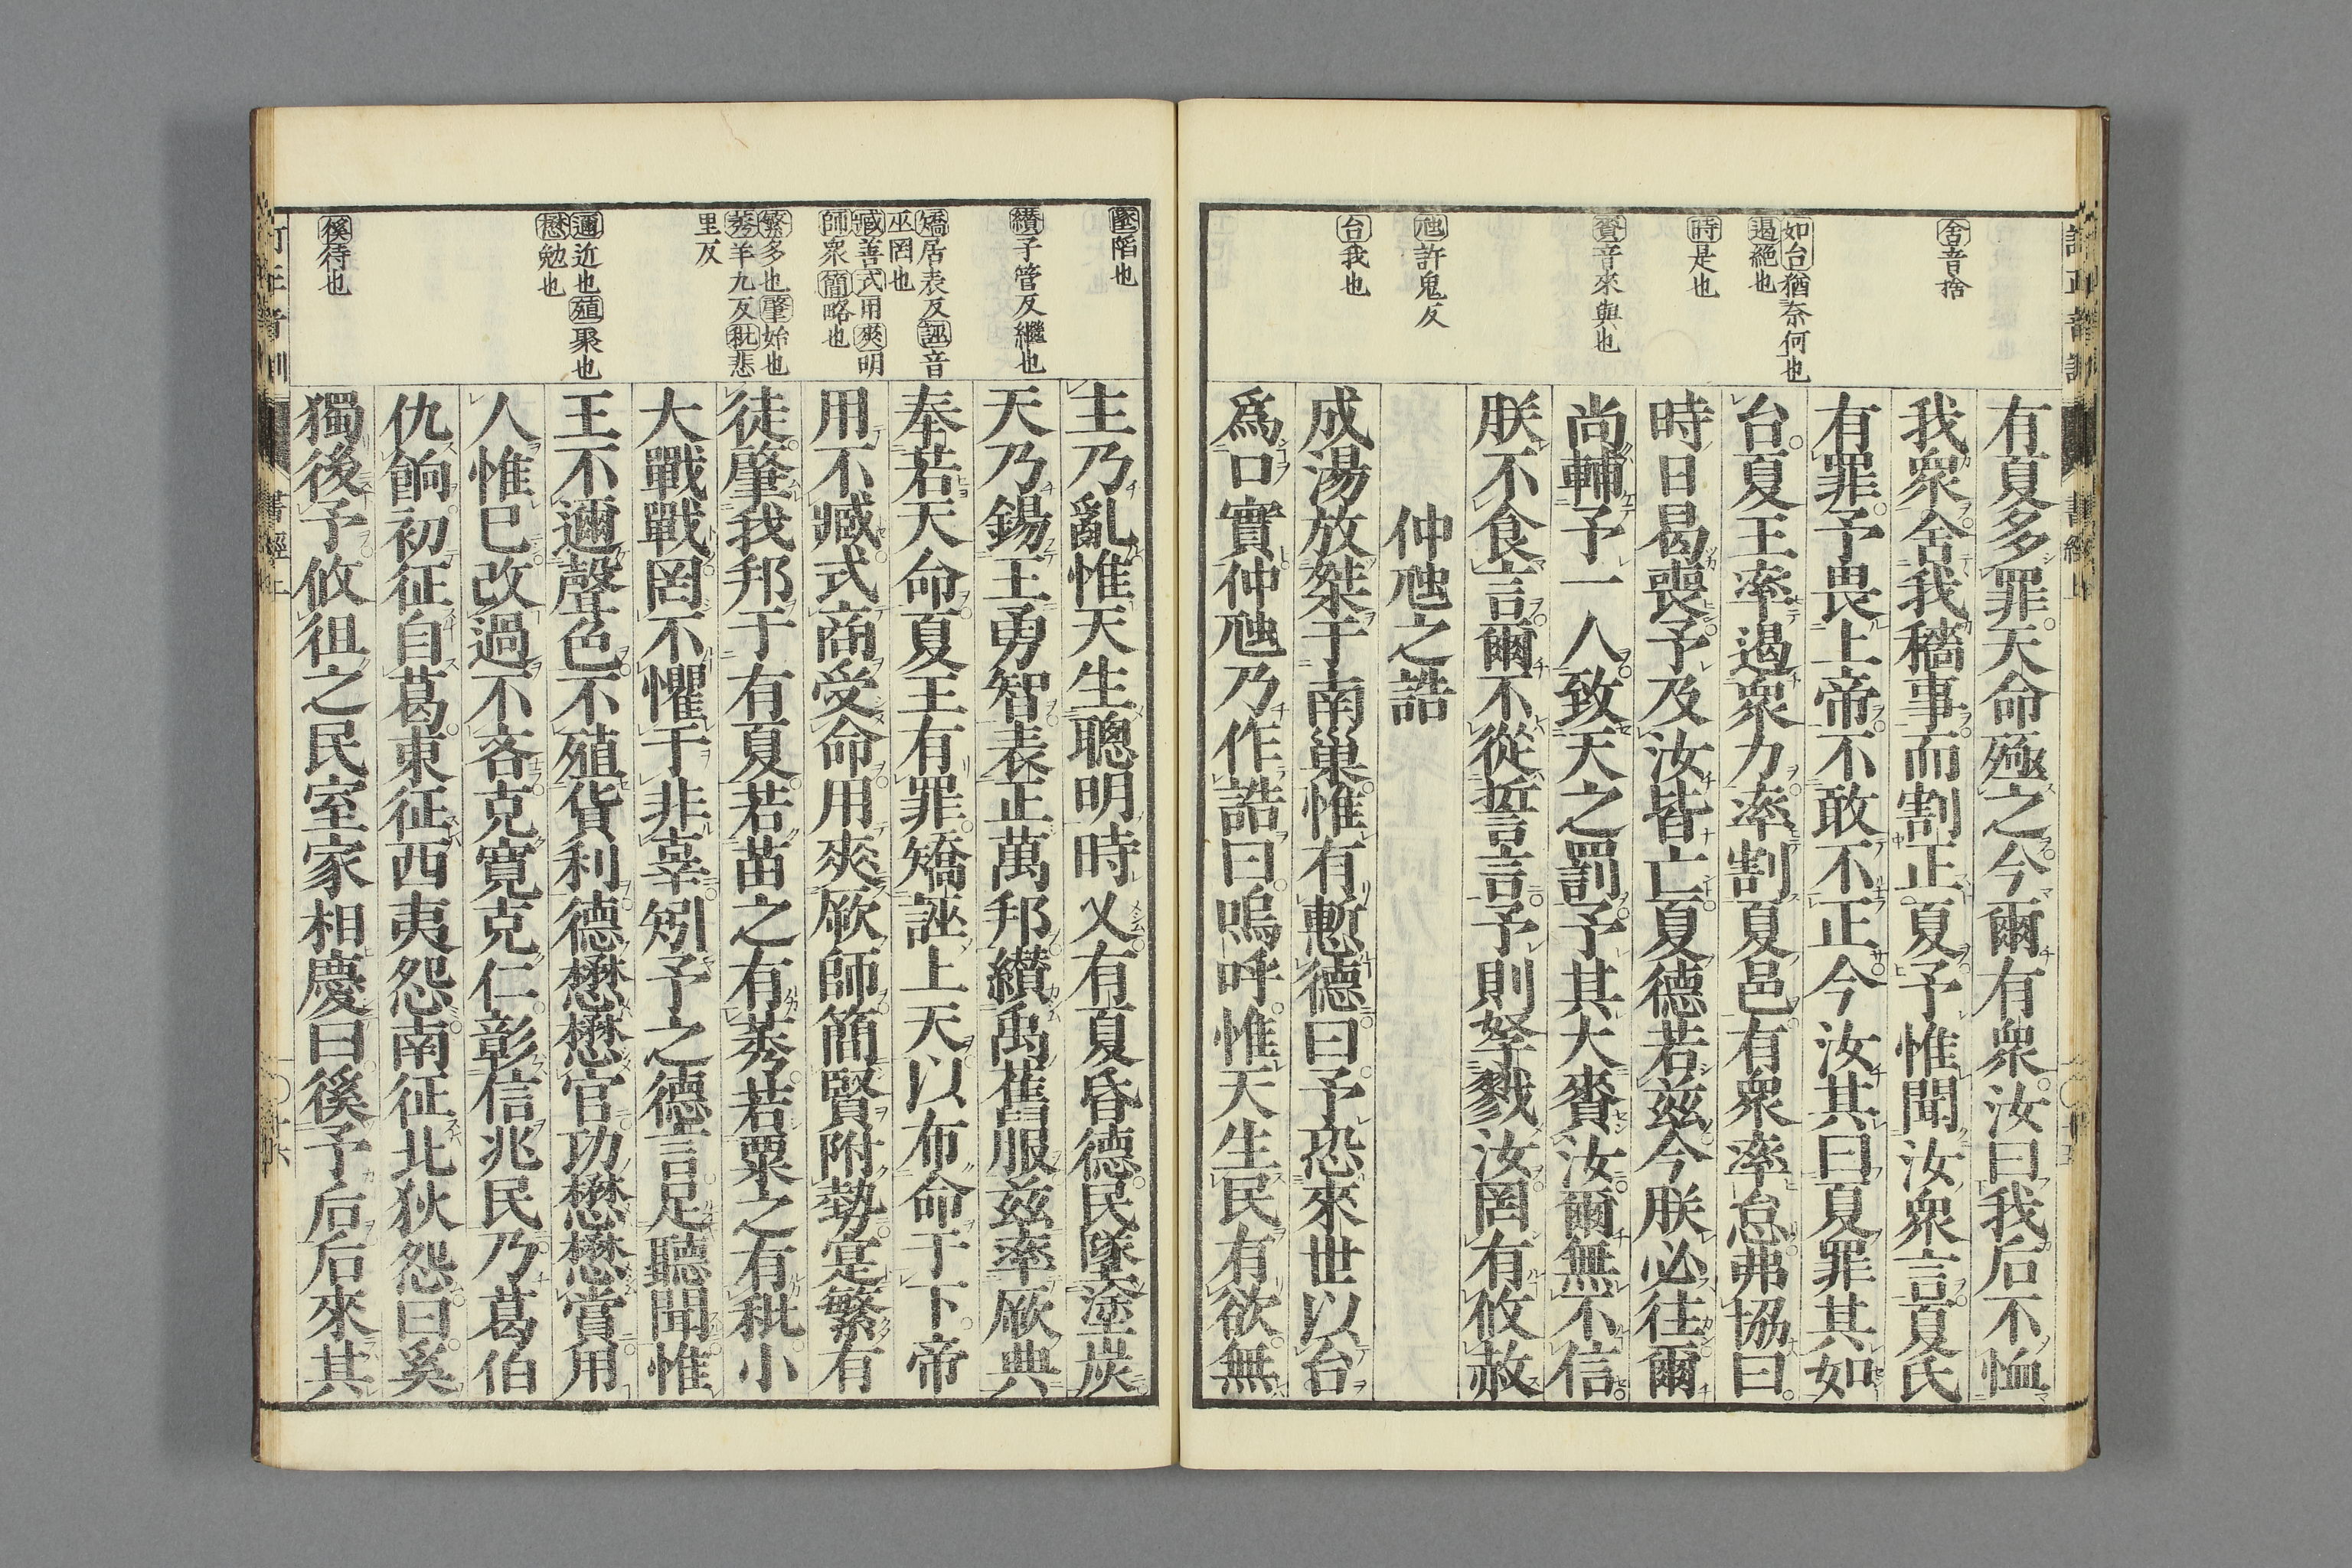 舍音捨
如台猶奈何也
遏絕也
時是也
賚音來與也
虺許鬼反
台我也
有夏多罪天命殛之今爾有衆汝曰我后不恤
我衆舍我穡事而割正夏予惟聞汝衆言夏氏
有罪予畏上帝不敢不正今汝其曰夏罪其如
台夏王率遏衆力率割夏邑有衆率怠弗協曰
時日曷喪予及汝皆亡夏德若茲今朕必往爾
尚輔予一人致天之罰予其大賚汝爾無不信
朕不食言爾不從誓言予則孥戮汝罔有攸赦
仲虺之誥
成湯放桀于南巢惟有慙德曰予恐來世以台
爲口實仲虺乃作誥曰嗚呼惟天生民有欲無
墜陷也
纉子管反繼也
矯居表反誣音
巫罔也
臧善式用爽明
師衆簡略也
繁多也肇始也
莠羊九反秕悲
里反
邇近也殖聚也
懋勉也
徯待也
主乃亂惟天生聰明時乂有夏昏德民墜塗炭
天乃錫王勇智表正萬邦纉禹舊服茲率厥典
奉若天命夏王有罪矯誣上天以布命于下帝
用不臧式商受命用爽厥師簡賢附勢寔繁有
徒肇我邦于有夏若苗之有莠若粟之有秕小
大戰戰罔不懼于非辜矧予之德言足聽聞惟
王不邇聲色不殖貨利德懋懋官功懋懋賞用
人惟已改過不吝克寛克仁彰信兆民乃葛伯
仇餉初征自葛東征西夷怨南征北狄怨曰奚
獨後予攸徂之民室家相慶曰徯予后后來其